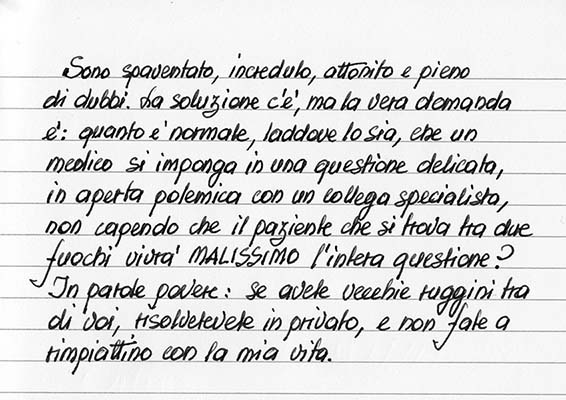 Sono spaventato, incredulo, attonito e pieno
di dubbi. La soluzione c'è, ma la vera domanda
è: quanto e' normale, laddove lo sia, che un
medico si imponga in una questione delicata,
in aperta polemica con un collega specialista,
non capendo che il paziente che si trova tra due
fuochi vivra' MALISSIMO l'intera questione?
In parole povere: se avete vecchie ruggini tra
di voi, risolvetevele in privato, e non fate a
rimpiattino con la mia vita.